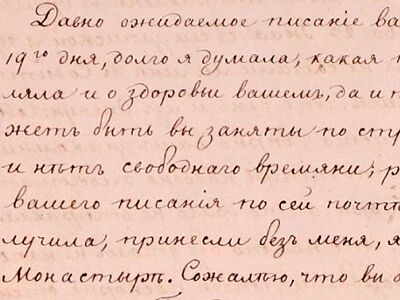 Давно ожидаемое писаніе ва
19го дня, долго я думала, какая п
мляла и о здоровьи вашемъ, да и п
жетъ быть вы заняты по стр
и нѣтъ свободнаго времяни; р
вашего писанія по сей почтѣ
лучила, принесли безъ меня, я
Монастырѣ. Сожалѣю, что вы о